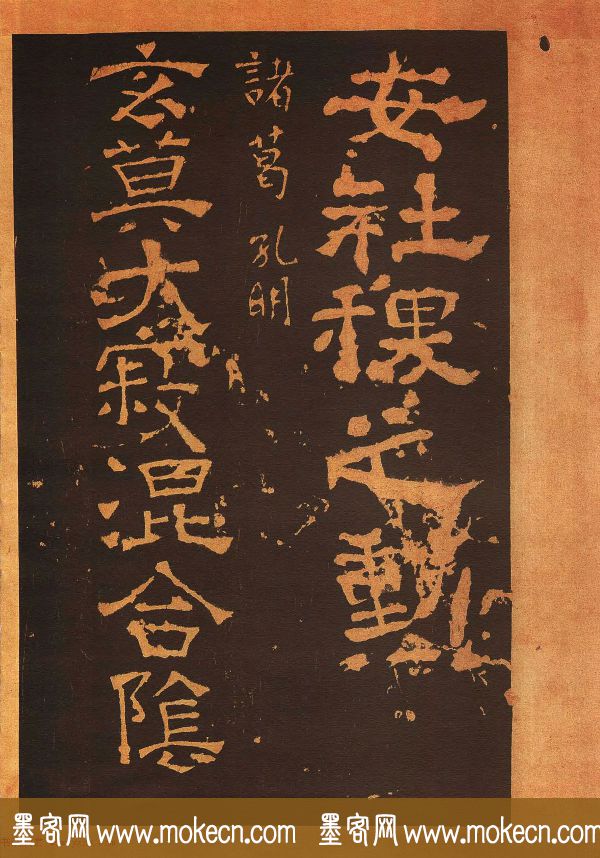 安社稷之勳
諸葛孔明
玄莫大寂混合陰
墨客网 www.mokecn.com 墨客网 www.mokecn.com